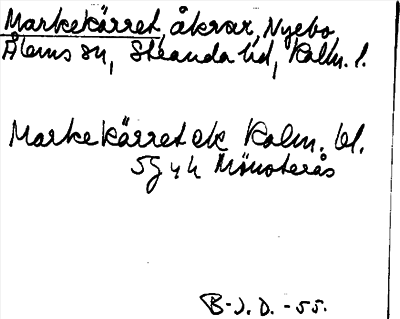 Markekärret, åkrar, Nyebo,
Ålems sn, Stranda hd, Kalm. l.
Markekärret ek Kalm. bl.
5G 4h Mönsterås
B-J. D. -55.